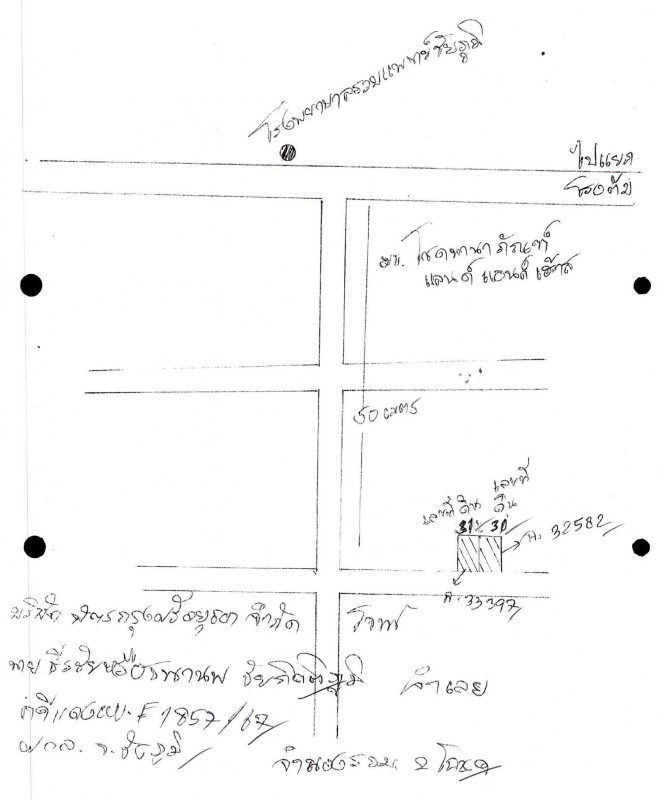 โรงพยาบาลรวมแพทย์ชัยภูมิ
ไปแยก
โรงต้ม
แลนด์ แอนด์ เฮ้าส์
50 เมตร
เลขที่ดิน
31
เลขที่ดิน
30
ฉ. 32582
ฉ. 33397
บริษัท จำกัด โจทก์
นาย ธีรชัยหรือธนานพ ชัยกิตติภูมิ จำเลย
คดีแดงผบ.E1857/67
จ.ชัยภูมิ
จำนองรวม 2 โฉนด